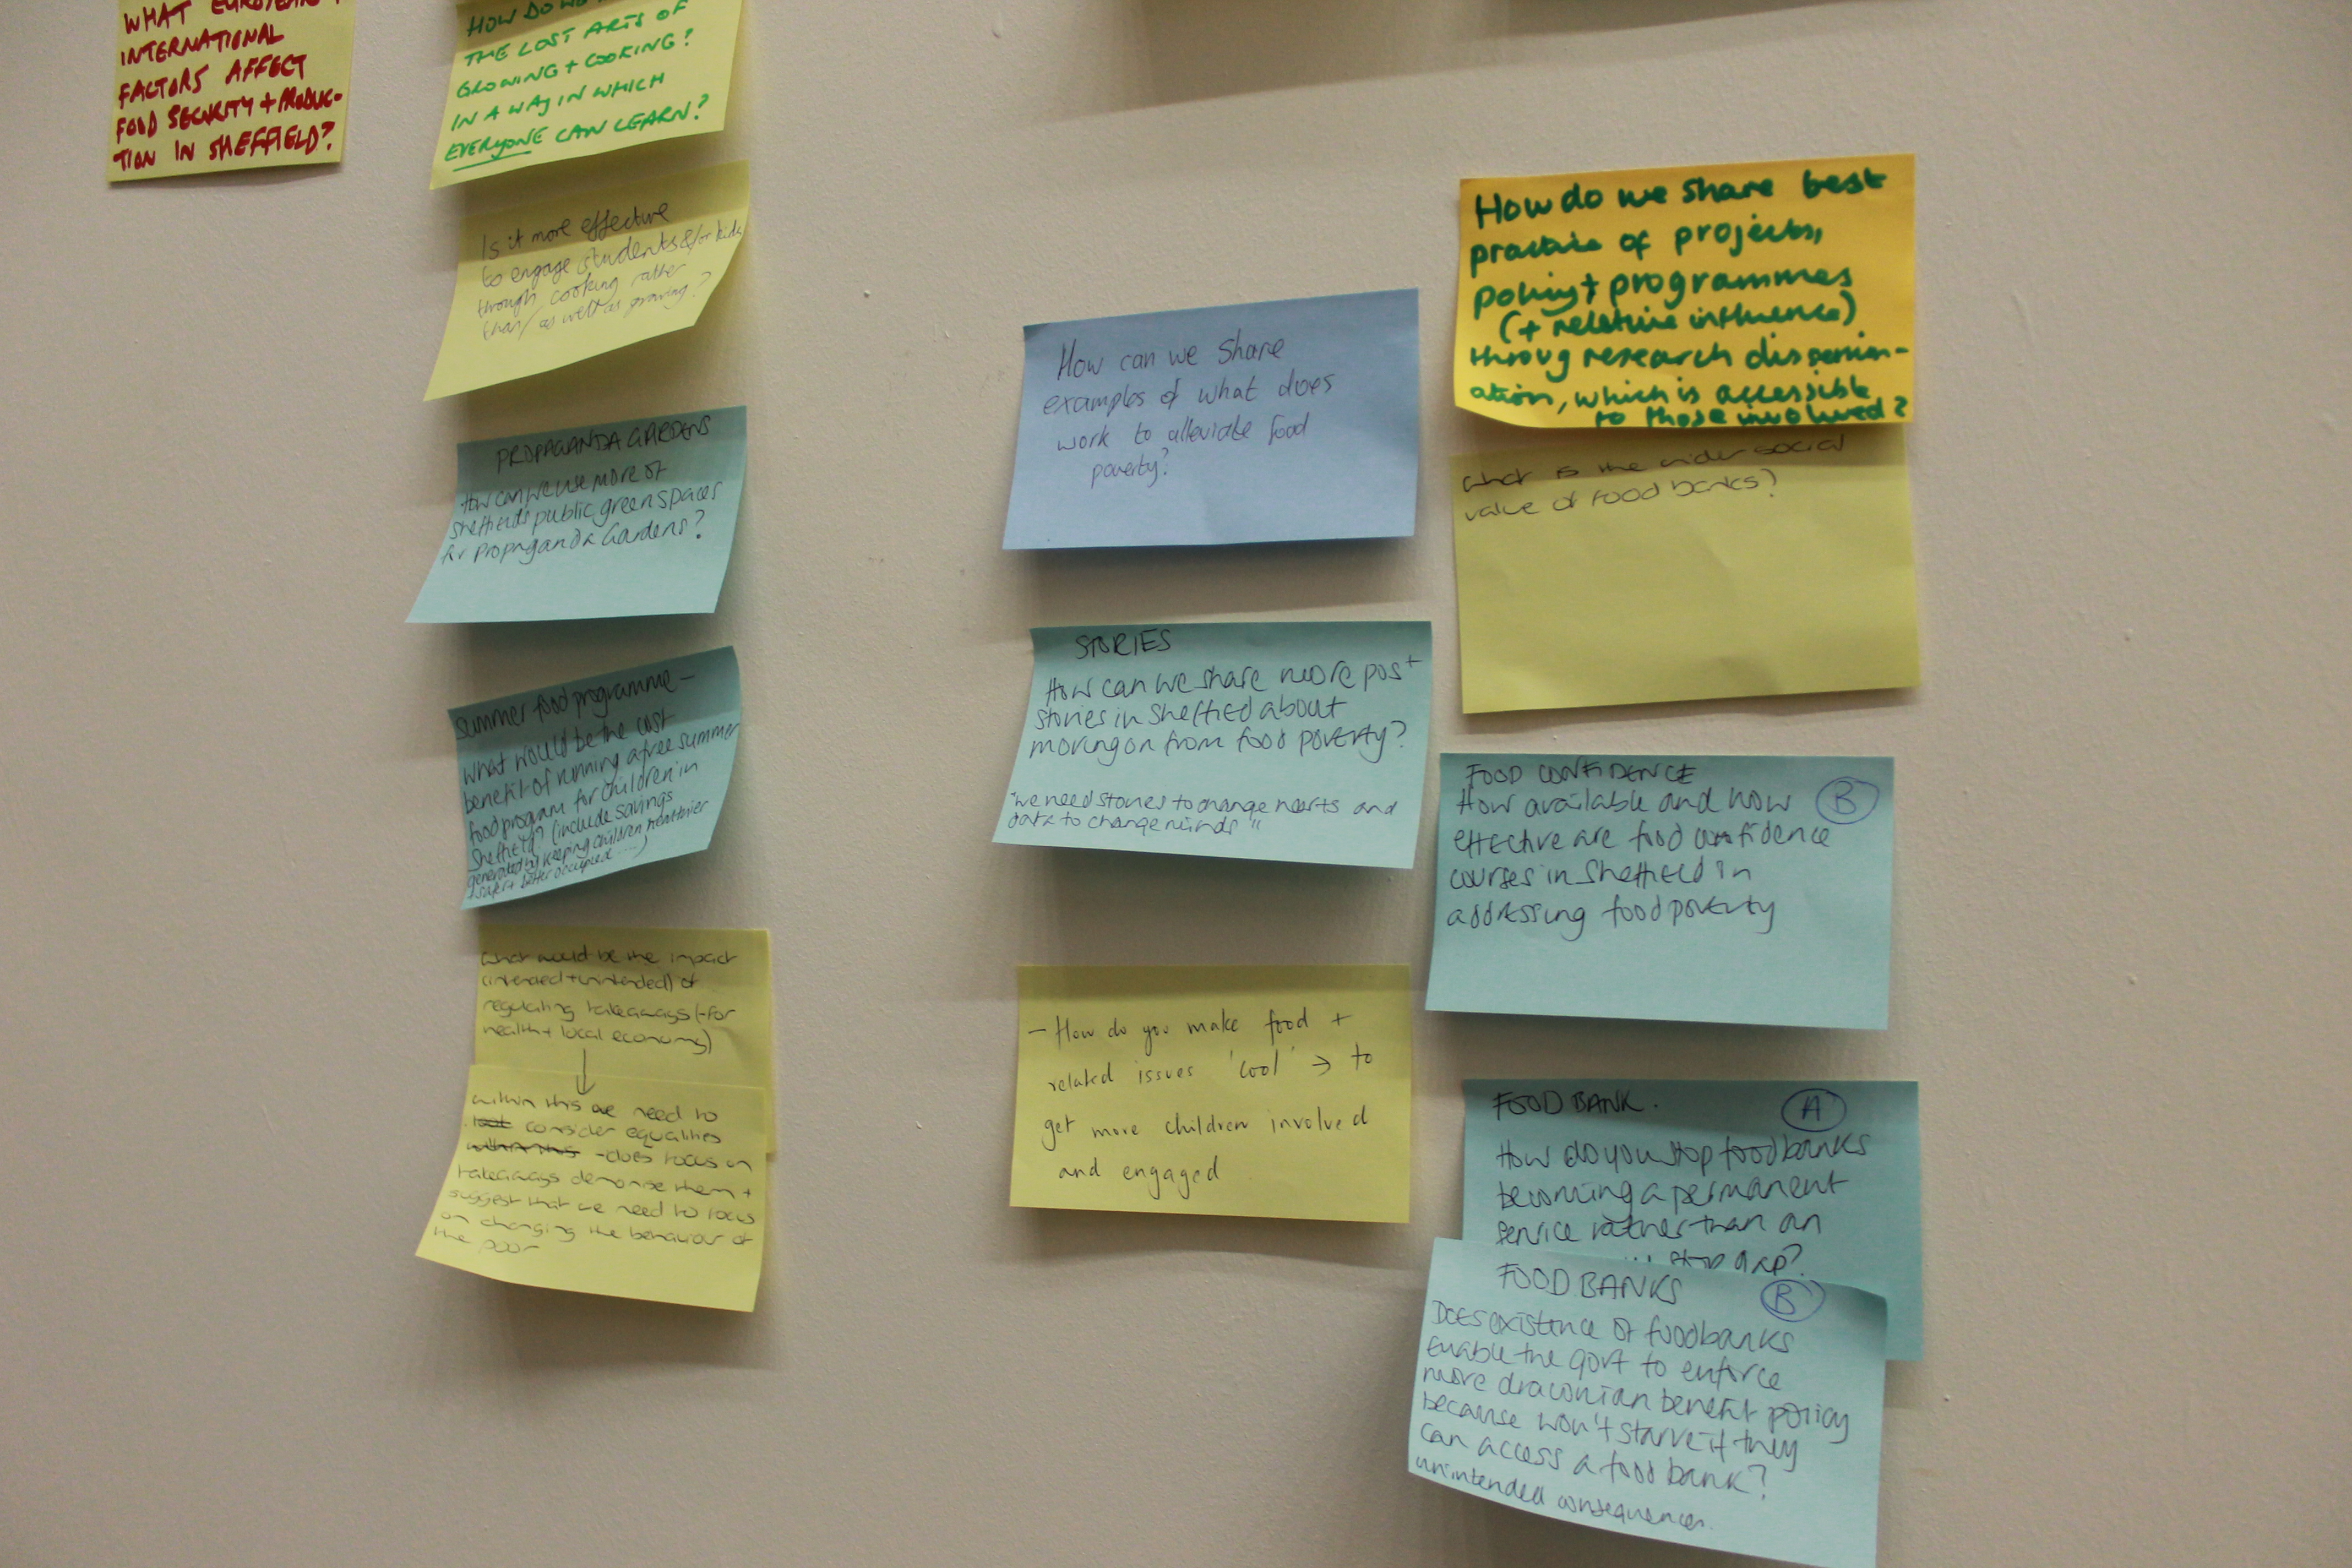 WHAT EUROPEAN +
INTERNATIONAL
FACTORS AFFECT
FOOD SECURITY + PRODUC-
TION IN SHEFFIELD?
HOW DO WE
THE LOST ARTS OF
GROWING + COOKING?
IN A WAY IN WHICH
EVERYONE CAN LEARN?
Is it more effective
to engage students &/or kids
through cooking rather
than/as well as growing?
PROPAGANDA GARDENS
How can we use more of
Sheffields public green spaces
for Propaganda Gardens?
Summer food programme -
What would be the cost
benefit of running a free summer
food program for children in
Sheffield? (include savings
generated by keeping children healthier
safer + better occupied ....)
What would be the impact
(intended + unintended) of
regulating takeaways (-for
health + local economy)
within this we need to
look consider equalities
within this - does focus on
takeaways demonise them +
suggest that we need to focus
on changing the behaviour of
the poor
How can we share
examples of what does
work to alleviate food
poverty?
STORIES
How can we share more pos+
stories in Sheffield about
moving on from food poverty?
"we need stories to change hearts and
data to change minds"
- How do you make food +
related issues 'cool' → to
get more children involved
and engaged
How do we share best
practice of projects,
policy + programmes
(+ relative influence)
throug research dissemin-
ation, which is accessible
to those involved?
What is the wider social
value of food banks?
FOOD CONFIDENCE
How available and how B
effective are food confidence
courses in Sheffield in
addressing food poverty
FOOD BANK. A
How do you stop foodbanks
becoming a permanent
service rather than an
stop gap?
FOOD BANKS B
Does existence of foodbanks
enable the govt to enforce
more draconian benefit policy
because won't starve if they
can access a food bank?
unintended consequences.